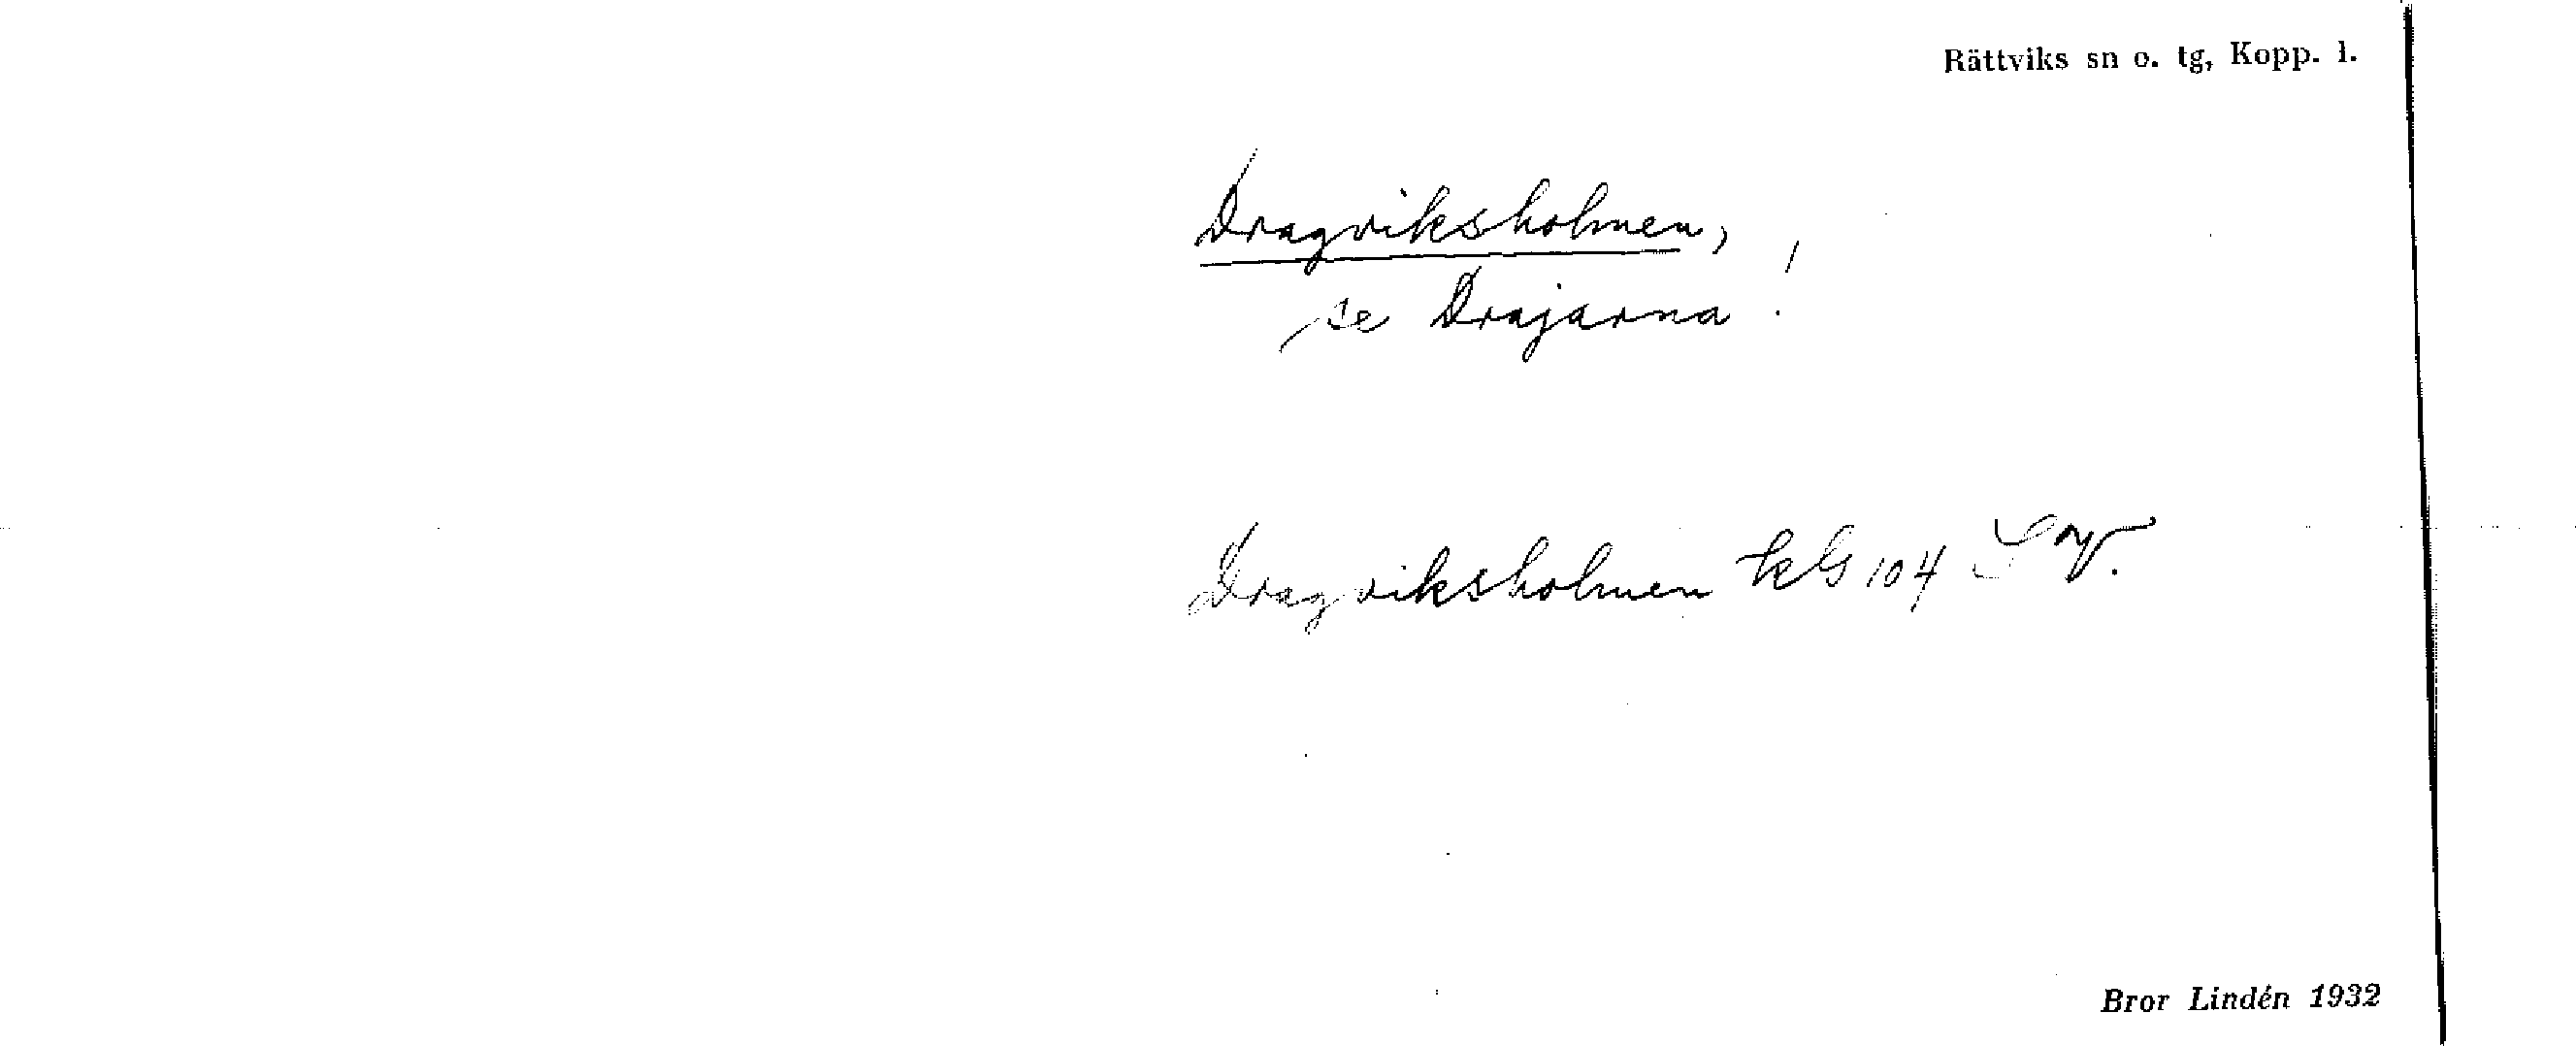 Rättviks sn o. tg, Kopp. l.
Dragviksholmen,
se Drajarna!
Dragviksholmen kG 104
Bror Lindén 1932